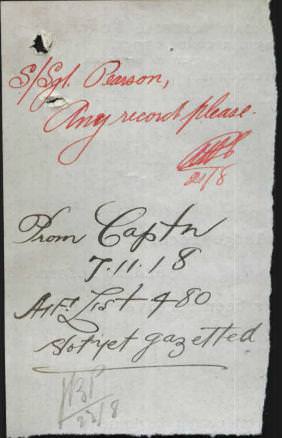 S/Sgt. Pearson,
Any record please.
21/8
Prom Captn
7.11.18
List 480
Not yet gazetted
23/8